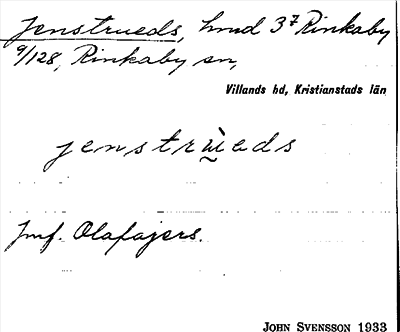 Jenstrueds, hmd 3⁷ Rinkaby
9/128, Rinkaby sn,
Villands hd, Kristianstads län
jenstrù̬eds
Jmf. Olafajers.
JOHN SVENSSON 1933